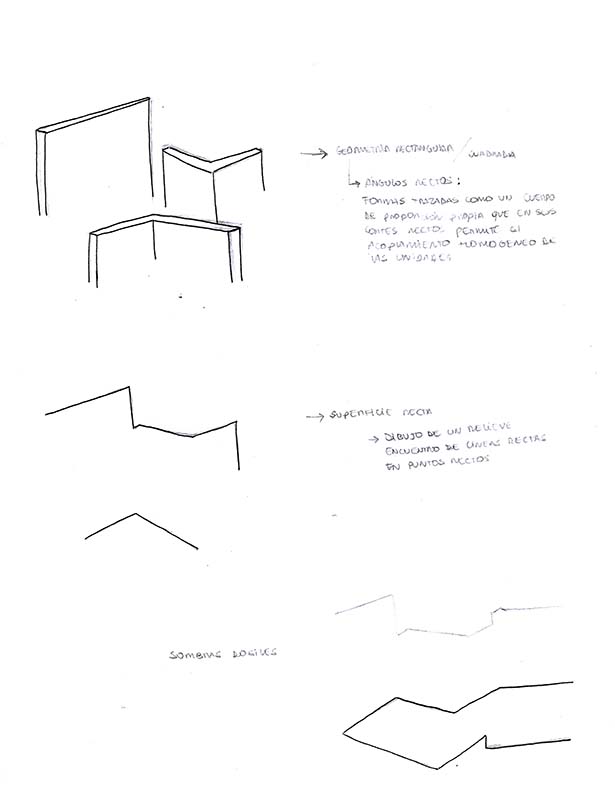 → GEOMETRÍA RECTANGULAR / CUADRADA
↳ ÁNGULOS RECTOS:
FORMAS TRAZADAS COMO UN CUERPO
DE PROPORCIÓN PROPIA QUE EN SUS
CORTES RECTOS PERMITE EL
ACOPLAMIENTO HOMOGENEO DE
LAS UNIDADES
→ SUPERFICIE RECTA
→ DIBUJO DE UN RELIEVE
ENCUENTRO DE LINEAS RECTAS
EN PUNTOS RECTOS
SOMBRAS